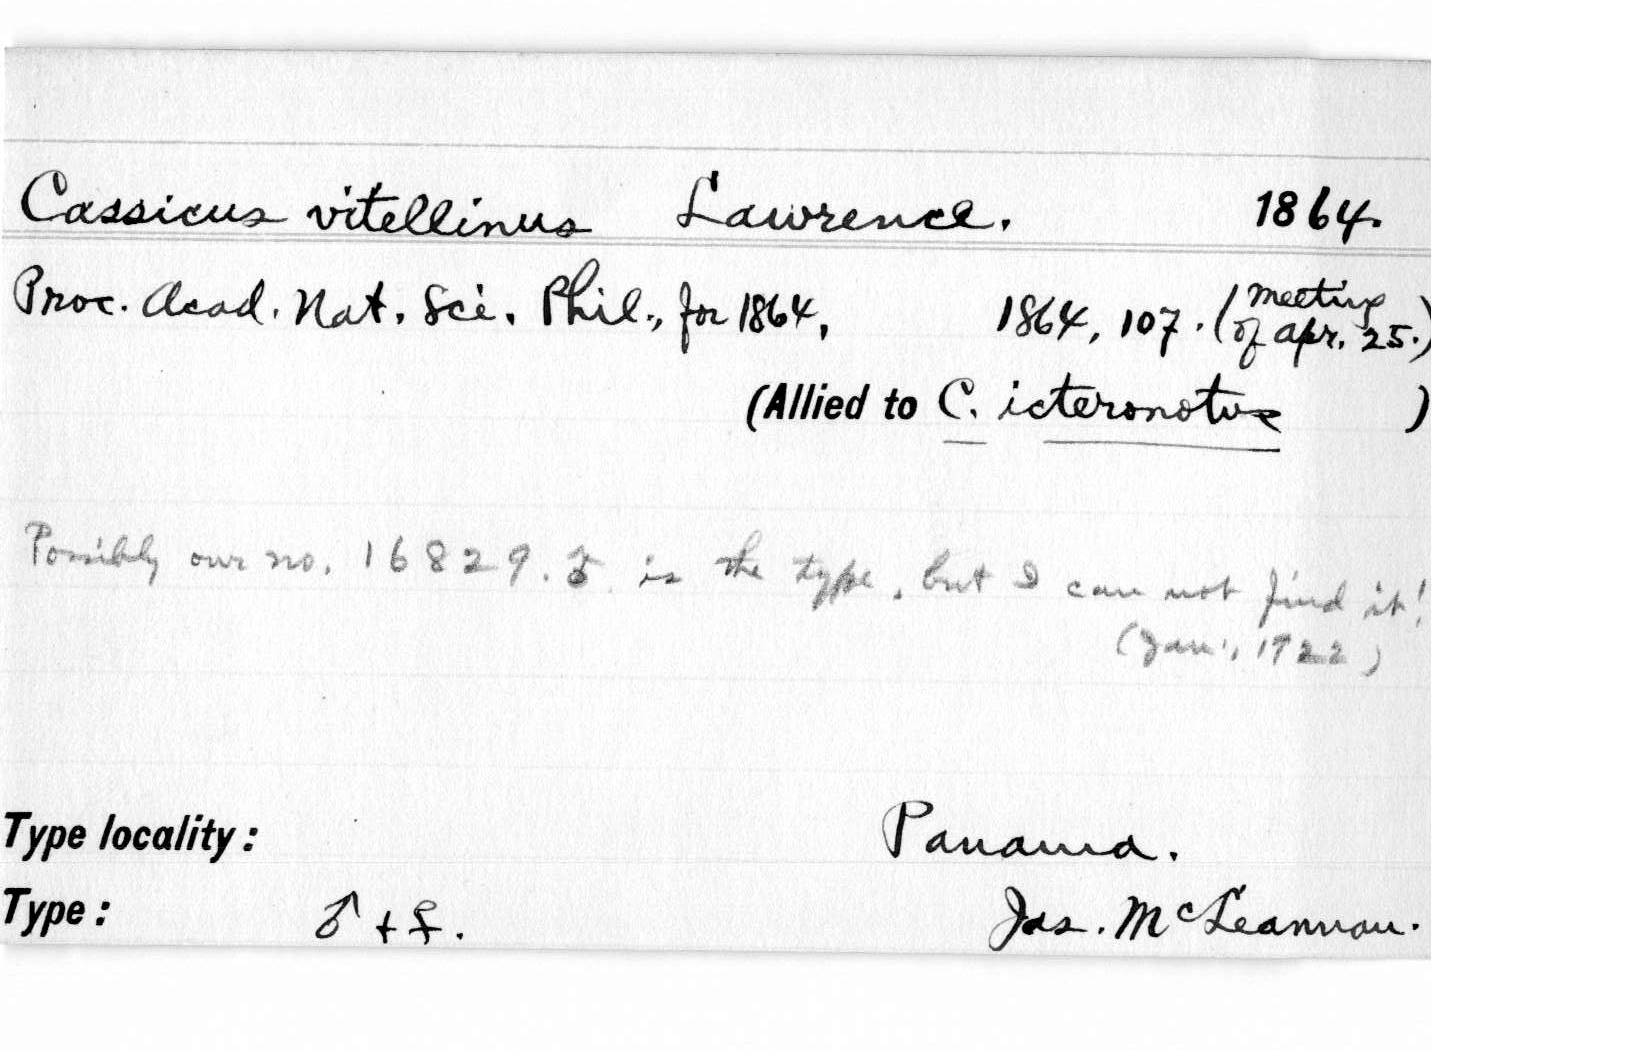 Cassicus vitellinus Lawrence. 1864.
Proc. Acad. Nat. Sci. Phil., for 1864, 1864, 107. (meeting of Apr. 25.)
(Allied to C. icteronotus )
Possibly our no. 16829. ♂ is the type, but I can not find it!
(Jan., 1922)
Type locality: Panama.
Type: ♂ + ♀. Jas. McLeannan.